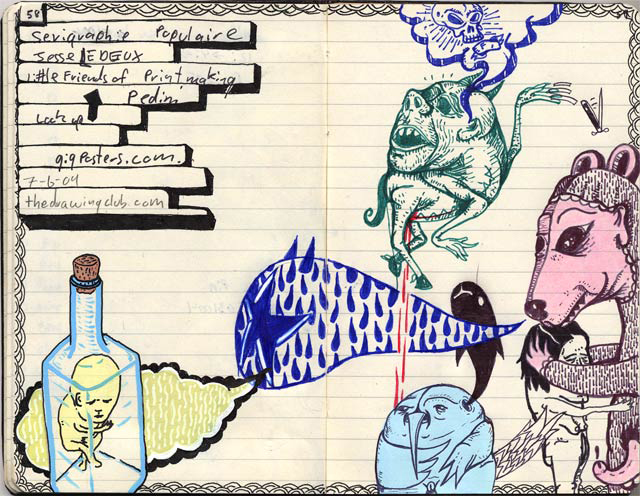 58
Serigraphie Populaire
Jesse LEDOUX
little Friends of Printmaking
Pedini
Look up
gigposters.com.
7-6-04
thedrawingclub.com